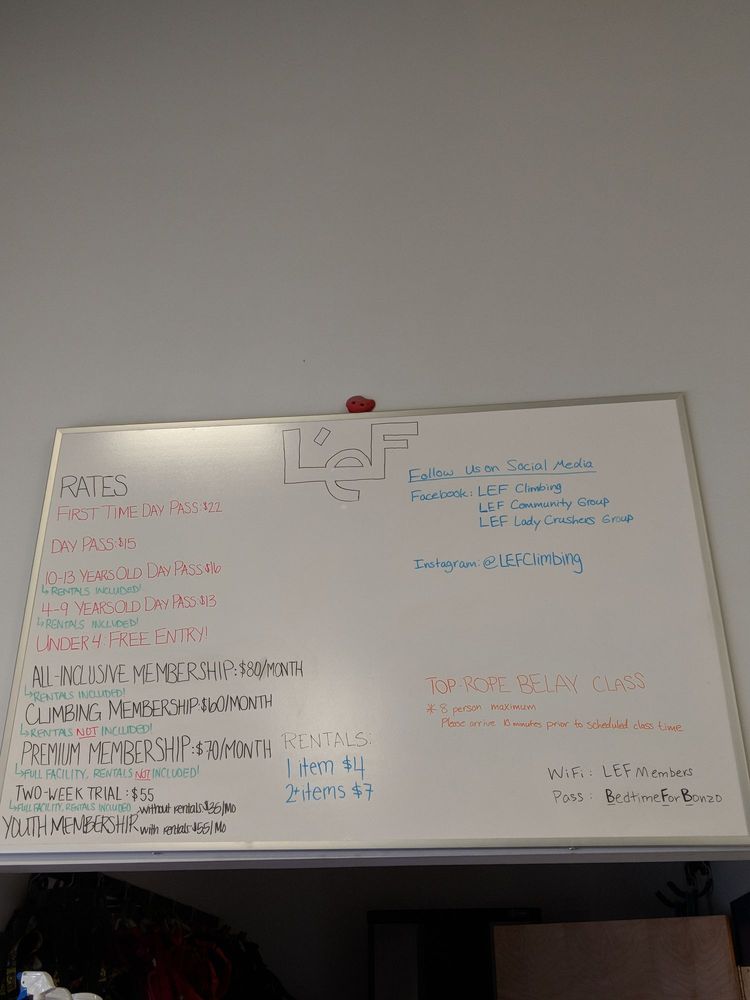 LEF
RATES
FIRST TIME DAY PASS: $22
DAY PASS: $15
10-13 YEARS OLD DAY PASS $16
↳ RENTALS INCLUDED!
4-9 YEARS OLD DAY PASS: $13
↳ RENTALS INCLUDED!
UNDER 4: FREE ENTRY!
ALL-INCLUSIVE MEMBERSHIP: $80/MONTH
↳ RENTALS INCLUDED!
CLIMBING MEMBERSHIP: $60/MONTH
↳ RENTALS NOT INCLUDED!
PREMIUM MEMBERSHIP: $70/MONTH
↳ FULL FACILITY, RENTALS NOT INCLUDED!
TWO-WEEK TRIAL: $55
↳ FULL FACILITY, RENTALS INCLUDED
YOUTH MEMBERSHIP without rentals $35/Mo
with rentals $55/Mo
RENTALS:
1 item $4
2+ items $7
Follow Us on Social Media
Facebook: LEF Climbing
LEF Community Group
LEF Lady Crushers Group
Instagram: @LEFClimbing
TOP-ROPE BELAY CLASS
* 8 person maximum
Please arrive 10 minutes prior to scheduled class time
WiFi: LEFMembers
Pass: BedtimeForBonzo